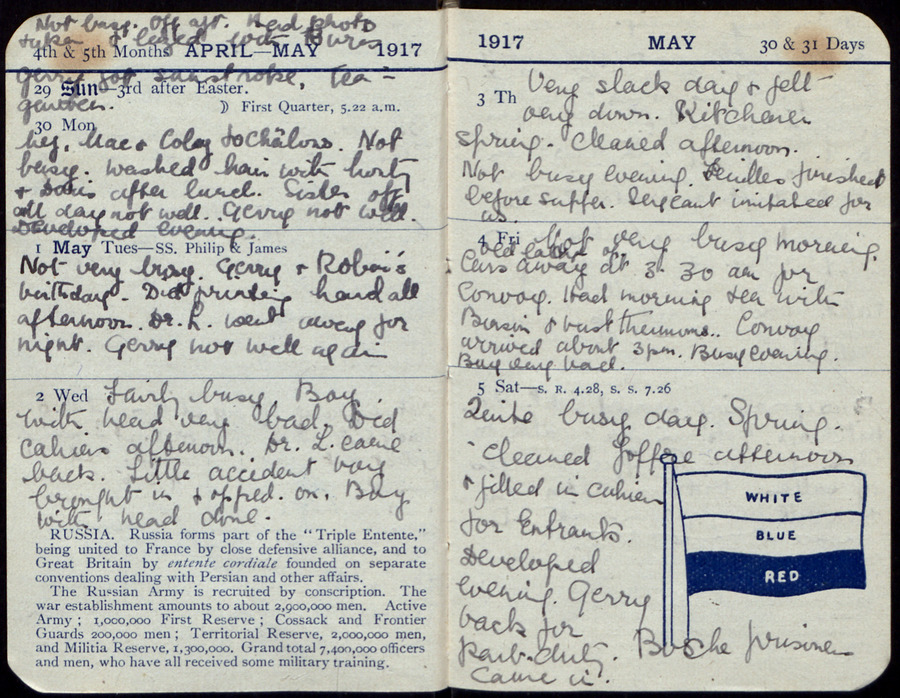 Not busy. Off aft. Had photo
taken & boxed with Bures
4th & 5th Months APRIL—MAY 1917
Gerry got sunstroke. Tea-
29 Sun—3rd after Easter.
☽ First Quarter, 5.22 a.m.
30 Mon
Mac & Coley to Châlons. Not
busy. Washed hair with horty
& Doris after lunch. Sister off
all day not well. Gerry not well.
Developed evening.
1 May Tues—SS. Philip & James
Not very busy. Gerry & Robin's
birthday. Did printing hard all
afternoon. Dr. L. went away for
night. Gerry not well again
2 Wed Fairly busy. Boy
with head very bad. Did
cahiers afternoon. Dr. L. came
back. Little accident boy
brought in & opped. on. Boy
with head done.
RUSSIA. Russia forms part of the "Triple Entente,"
being united to France by close defensive alliance, and to
Great Britain by entente cordiale founded on separate
conventions dealing with Persian and other affairs.
The Russian Army is recruited by conscription. The
war establishment amounts to about 2,900,000 men. Active
Army; 1,000,000 First Reserve; Cossack and Frontier
Guards 200,000 men; Territorial Reserve, 2,000,000 men,
and Militia Reserve, 1,300,000. Grand total 7,400,000 officers
and men, who have all received some military training.
1917 MAY 30 & 31 Days
3 Th Very slack day & felt
very down. Kitchener
spring. Cleaned afternoon.
Not busy evening. finished
before supper. Sergeant imitated for
us.
4 Fri Not very busy morning.
Cars away at 3.30 am for
Convoy. Had morning tea with
Convoy
arrived about 3pm. Busy evening.
Boy very bad.
5 Sat—S. R. 4.28, S. S. 7.26
Quite busy day. Spring.
Cleaned Joffre afternoon
& filled in cahier
for Entrants.
Developed
evening. Gerry
back for
part-duty. Bosche prisoner
came in.
WHITE
BLUE
RED